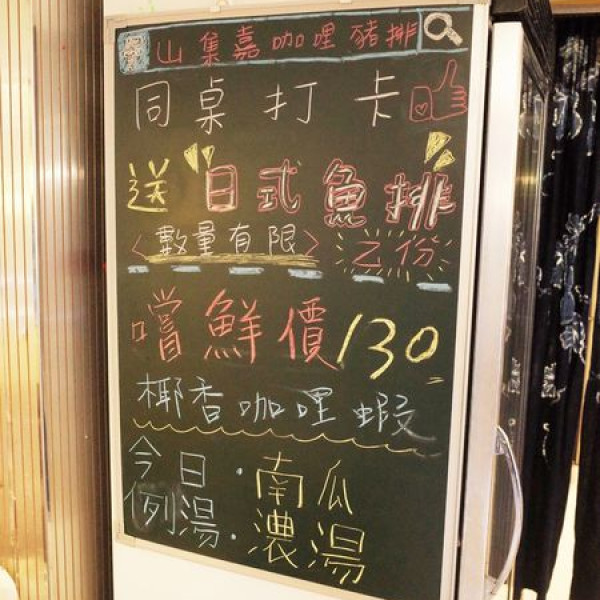 山集嘉咖哩豬排
同桌打卡
送日式魚排
<數量有限> 乙份
嚐鮮價130
椰香咖哩蝦
今日例湯
南瓜濃湯